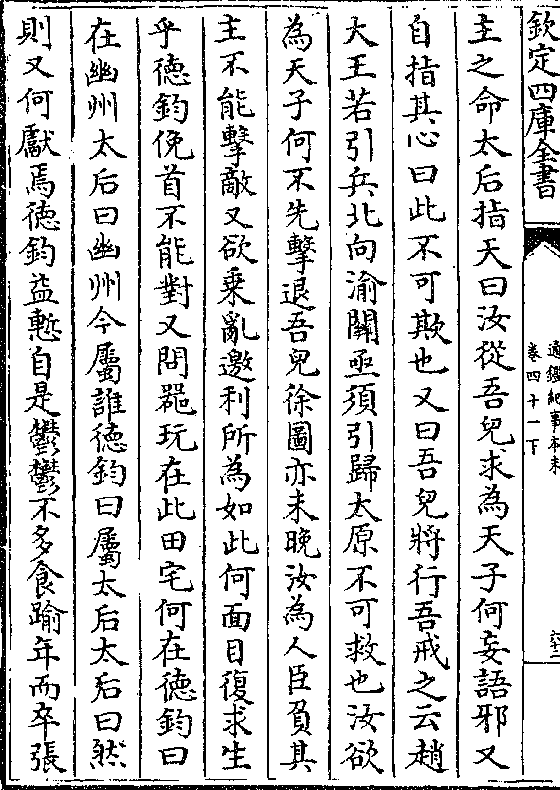 欽定四庫全書
通鑑紀事本末
卷四十一下
六十二
主之命太后指天曰汝從吾兒求為天子何妄語邪又
自指其心曰此不可欺也又曰吾兒將行吾戒之云趙
大王若引兵北向渝關亟須引歸太原不可救也汝欲
為天子何不先擊退吾兒徐圖亦未晚汝為人臣負其
主不能擊敵又欲乗亂邀利所為如此何面目復求生
乎徳鈞俛首不能對又問噐玩在此田宅何在徳鈞曰
在幽州太后曰幽州今屬誰徳鈞曰屬太后太后曰然
則又何獻焉徳鈞益慙自是鬱鬱不多食踰年而卒張